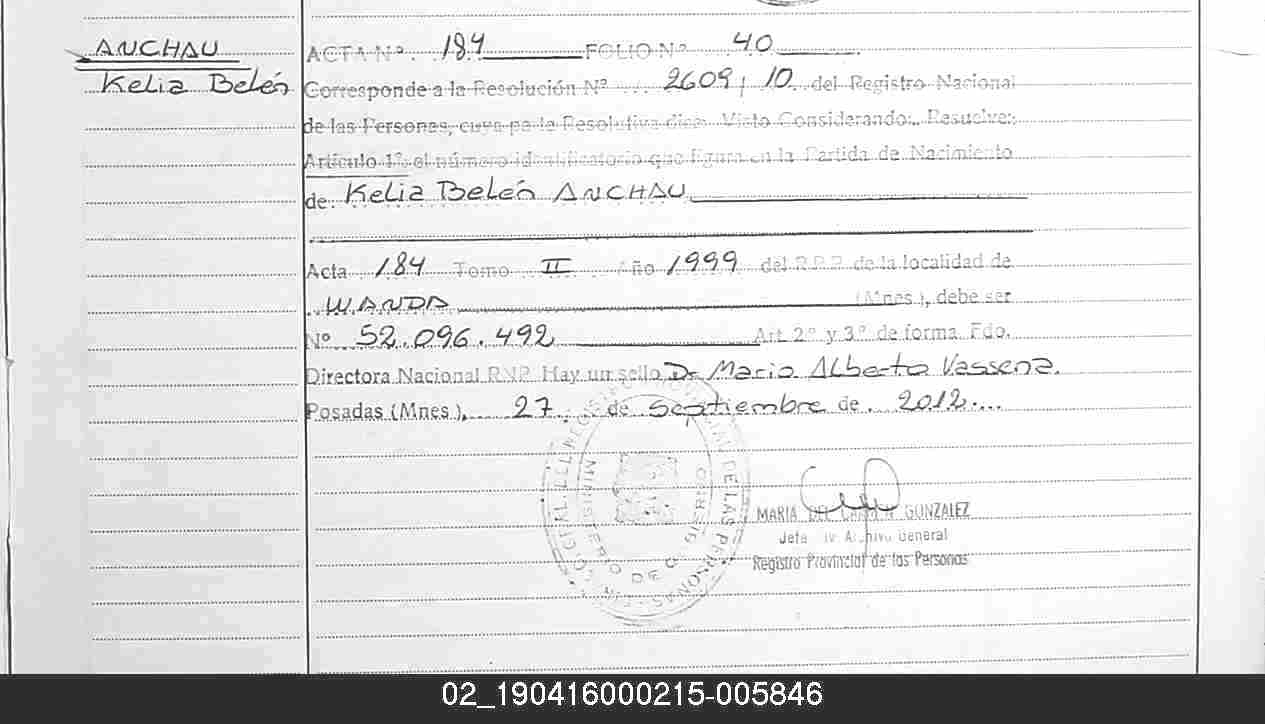 ANCHAU
Kelia Belén
ACTA Nº 184 FOLIO Nº 40
Corresponde a la Resolución Nº 2609/10 del Registro Nacional
de las Personas, cuya parte Resolutiva dice: Visto Considerando: Resuelve:
Artículo 1º el número identificatorio que figura en la Partida de Nacimiento
de: Kelia Belén ANCHAU
Acta 184 Tomo II Año 1999 del R.P.P. de la localidad de
WANDA (Mnes.), debe ser
Nº 52.096.492 Art. 2º y 3º de forma. Fdo.
Directora Nacional RNP. Hay un sello Dr Mario Alberto Vassena.
Posadas (Mnes.), 27 de Septiembre de 2012
DE LAS PERSONAS
MARIA DEL GONZALEZ
Jefa Archivo General
Registro Provincial de las Personas
02_190416000215-005846